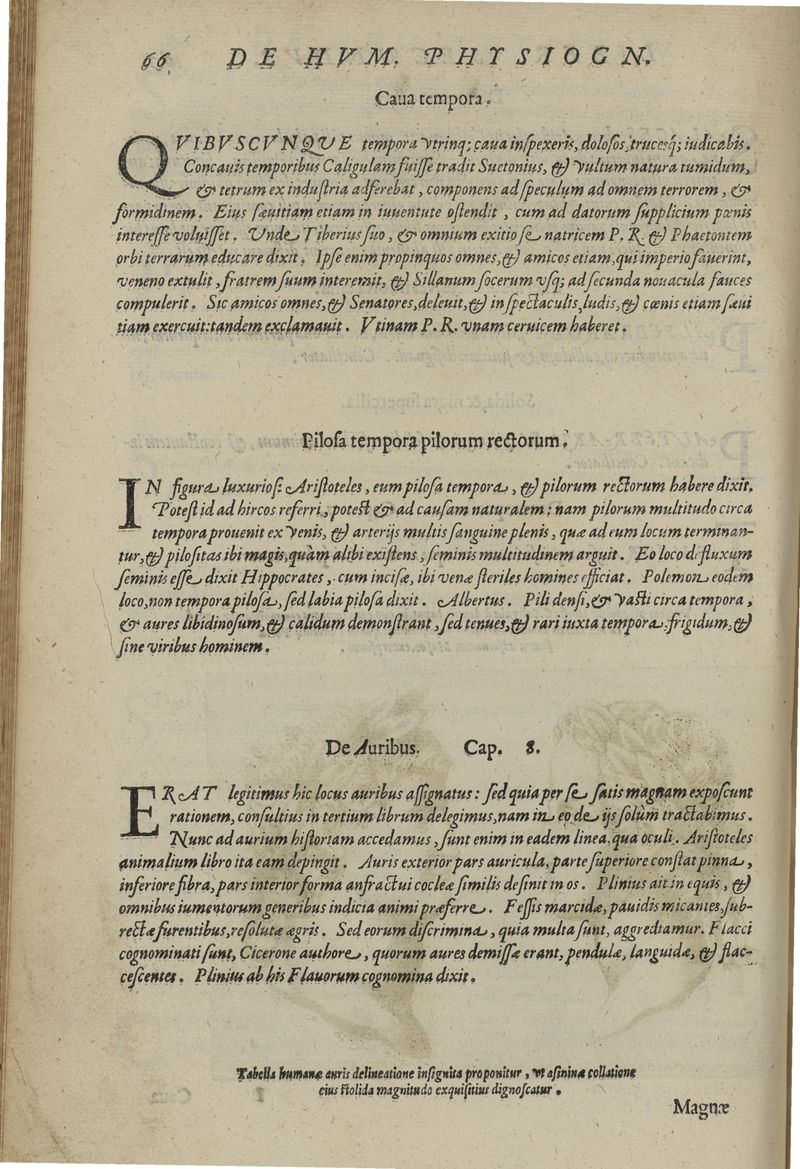 66 DE HVM. PHYSIOGN.
Caua tempora.
QVIBVSCVNQVE tempora vtrinq; caua inſpexeris, doloſos, trucesq; iudicabis.
Concauis temporibus Caligulam fuiſſe tradit Suetonius, & vultum natura tumidum,
& tetrum ex induſtria adferebat, componens ad ſpeculum ad omnem terrorem, &
formidinem. Eius ſæuitiam etiam in iuuentute oſtendit, cum ad datorum ſupplicium pœnis
intereſſe voluiſſet. Vnde Tiberius ſuo, & omnium exitio ſe natricem P. R. & Phaetontem
orbi terrarum educare dixit. Ipſe enim propinquos omnes, & amicos etiam, qui imperio fauerint,
veneno extulit, fratrem ſuum interemit, & Sillanum ſocerum vſq; ad ſecunda nouacula fauces
compulerit. Sic amicos omnes, & Senatores, deleuit, & in ſpectaculis, ludis, & cœnis etiam ſæui
tiam exercuit: tandem exclamauit. Vtinam P. R. vnam ceruicem haberet.
Piloſa tempora pilorum rectorum.
IN figura luxurioſi Ariſtoteles, eum piloſa tempora, & pilorum rectorum habere dixit.
Poteſt id ad hircos referri, poteſt & ad cauſam naturalem: nam pilorum multitudo circa
tempora prouenit ex venis, & arterijs multis ſanguine plenis, quæ ad eum locum terminan-
tur, & piloſitas ibi magis, quàm alibi exiſtens, ſeminis multitudinem arguit. Eo loco defluxum
ſeminis eſſe dixit Hippocrates, cum inciſæ, ibi venæ ſteriles homines efficiat. Polemon eodem
loco, non tempora piloſa, ſed labia piloſa dixit. Albertus. Pili denſi, & vaſti circa tempora,
& aures libidinoſum, & calidum demonſtrant, ſed tenues, & rari iuxta tempora, frigidum, &
ſine viribus hominem.
De Auribus. Cap. 8.
ERAT legitimus hic locus auribus aſſignatus: ſed quia per ſe ſatis magnam expoſcunt
rationem, conſultius in tertium librum delegimus, nam in eo de ijs ſolùm tractabimus.
Nunc ad aurium hiſtoriam accedamus, ſunt enim in eadem linea, qua oculi. Ariſtoteles
animalium libro ita eam depingit. Auris exterior pars auricula, parte ſuperiore conſtat pinna,
inferiore fibra, pars interior forma anfractui cocleæ ſimilis deſinit in os. Plinius ait in equis, &
omnibus iumentorum generibus indicia animi præferre. Feſſis marcidæ, pauidis micantes, ſub-
rectæ furentibus, reſolutæ ægris. Sed eorum diſcrimina, quia multa ſunt, aggrediamur. Flacci
cognominati ſunt, Cicerone authore, quorum aures demiſſæ erant, pendulæ, languidæ, & flac-
ceſcentes. Plinius ab his Flauorum cognomina dixit.
Tabella humanæ auris delineatione inſignita proponitur, vt aſininæ collatione
eius ſtolida magnitudo exquiſitius dignoſcatur.
Magnæ